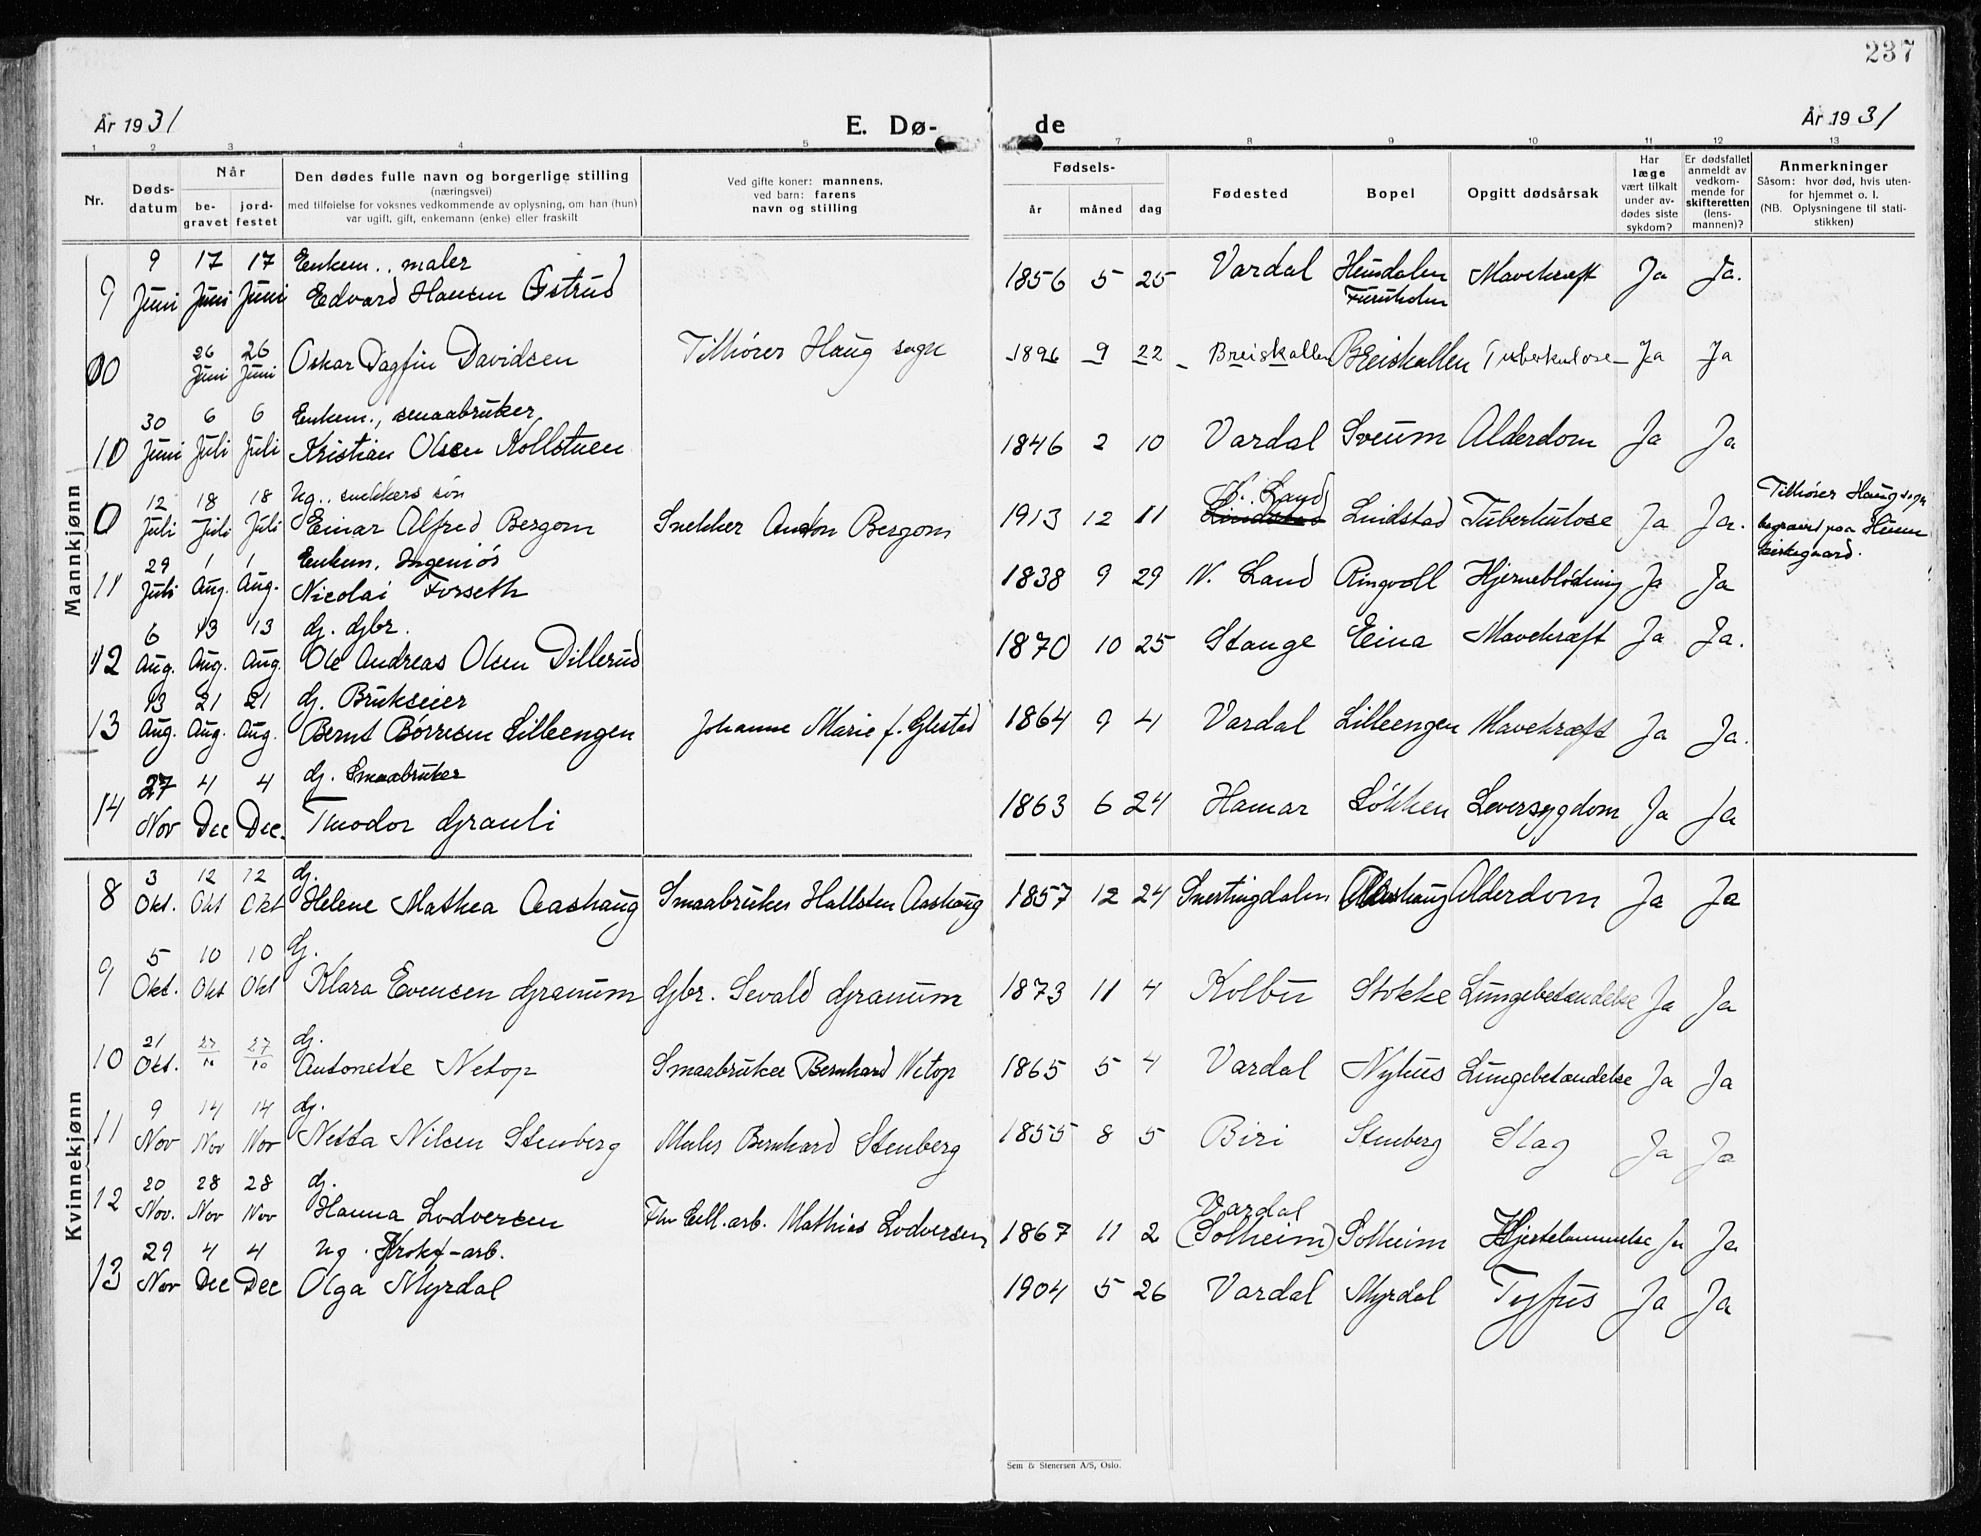 237
År 1931
E. Dø-
de
År 1931
1 2 3 4 5 7 8 9 10 11 12 13
Nr.
Døds-
datum
Når
be-
gravet
jord-
festet
Den dødes fulle navn og borgerlige stilling
(næringsvei)
med tilføielse for voksnes vedkommende av oplysning, om han (hun)
var ugift, gift, enkemann (enke) eller fraskilt
Ved gifte koner: mannens,
ved barn: farens
navn og stilling
Fødsels-
år måned dag
Fødested
Bopel
Opgitt dødsårsak
Har
læge
vært tilkalt
under av-
dødes siste
sykdom?
Er dødsfallet
anmeldt av
vedkom-
mende for
skifteretten
(lens-
mannen)?
Anmerkninger
Såsom: hvor død, hvis uten-
for hjemmet o. l.
(NB. Oplysningene til stati-
stikken)
Mannkjønn
9 17 17 Enkem., maler
9 Juni Juni Juni Edvard Hansen Østrud 1856 5 25 Vardal Hunsdalen Mavekræft Ja Ja.
Furuholm
26 26
0 Juni Juni Oskar Dagfin Davidsen Tilhører Haug sogn 1896 9 22 Breiskallen Breiskallen Tuberkulose Ja Ja
30 6 6 Enkem., smaabruker
10 Juni Juli Juli Kristian Olsen Kollstuen 1846 2 10 Vardal Sveum Alderdom Ja Ja
12 18 18 Ug., snekkers søn N. Land Tilhører Haug sogn
0 Juli Juli Juli Einar Alfred Bergom Snekker Anton Bergom 1913 12 11 Lindstad Lindstad Tuberkulose Ja Ja. begravet paa Hunn
kirkegaard.
29 1 1 Enkem. Ingeniør
11 Juli Aug. Aug. Nicolai Forseth 1838 9 29 N. Land Ringvoll Hjerneblødning Ja Ja
6 13 13 Gj. Gbr.
12 Aug. Aug. Aug. Ole Andreas Olsen Dillerud 1870 10 25 Stange Eina Mavekræft Ja Ja.
13 21 21 Gj. Brukseier
13 Aug. Aug. Aug. Bernt Børresen Lilleengen Johanne Marie f. Glestad 1864 9 4 Vardal Lilleengen Mavekræft Ja Ja.
27 4 4 Gj. Smaabruker
14 Nov Dec Dec. Teodor Granli 1863 6 24 Hamar Løkken Leversygdom Ja Ja
Kvinnekjønn
3 12 12 Gj.
8 Okt. Okt Okt Helene Mathea Aashaug Smaabruker Hallsten Aashaug 1857 12 24 Snertingdalen Aashaug Alderdom Ja Ja
5 10 10 Gj.
9 Okt. Okt Okt Klara Evensen Granum Gbr. Sevald Granum 1873 11 4 Kolbu Stokke Lungebetændelse Ja Ja
21 27 27 Gj.
10 Okt. 10 10 Antonette Netop Smaabruker Bernhard Netop 1865 5 4 Vardal Nyhus Lungebetændelse Ja Ja
9 14 14 Gj.
11 Nov Nov Nov Netta Nilsen Stenberg Bernhard Stenberg 1855 8 5 Biri Stenberg Slag Ja Ja
20 28 28 Gj. Vardal
12 Nov. Nov Nov Hanna Lodversen Cell.arb. Mathias Lodversen 1867 11 2 (Solheim) Solheim Hjertelammelse Ja Ja
29 4 4 Ug. -arb.
13 Nov Dec Dec Olga Myrdal 1904 5 26 Vardal Myrdal Tyfus Ja Ja
Sem & Stenersen A/S, Oslo.